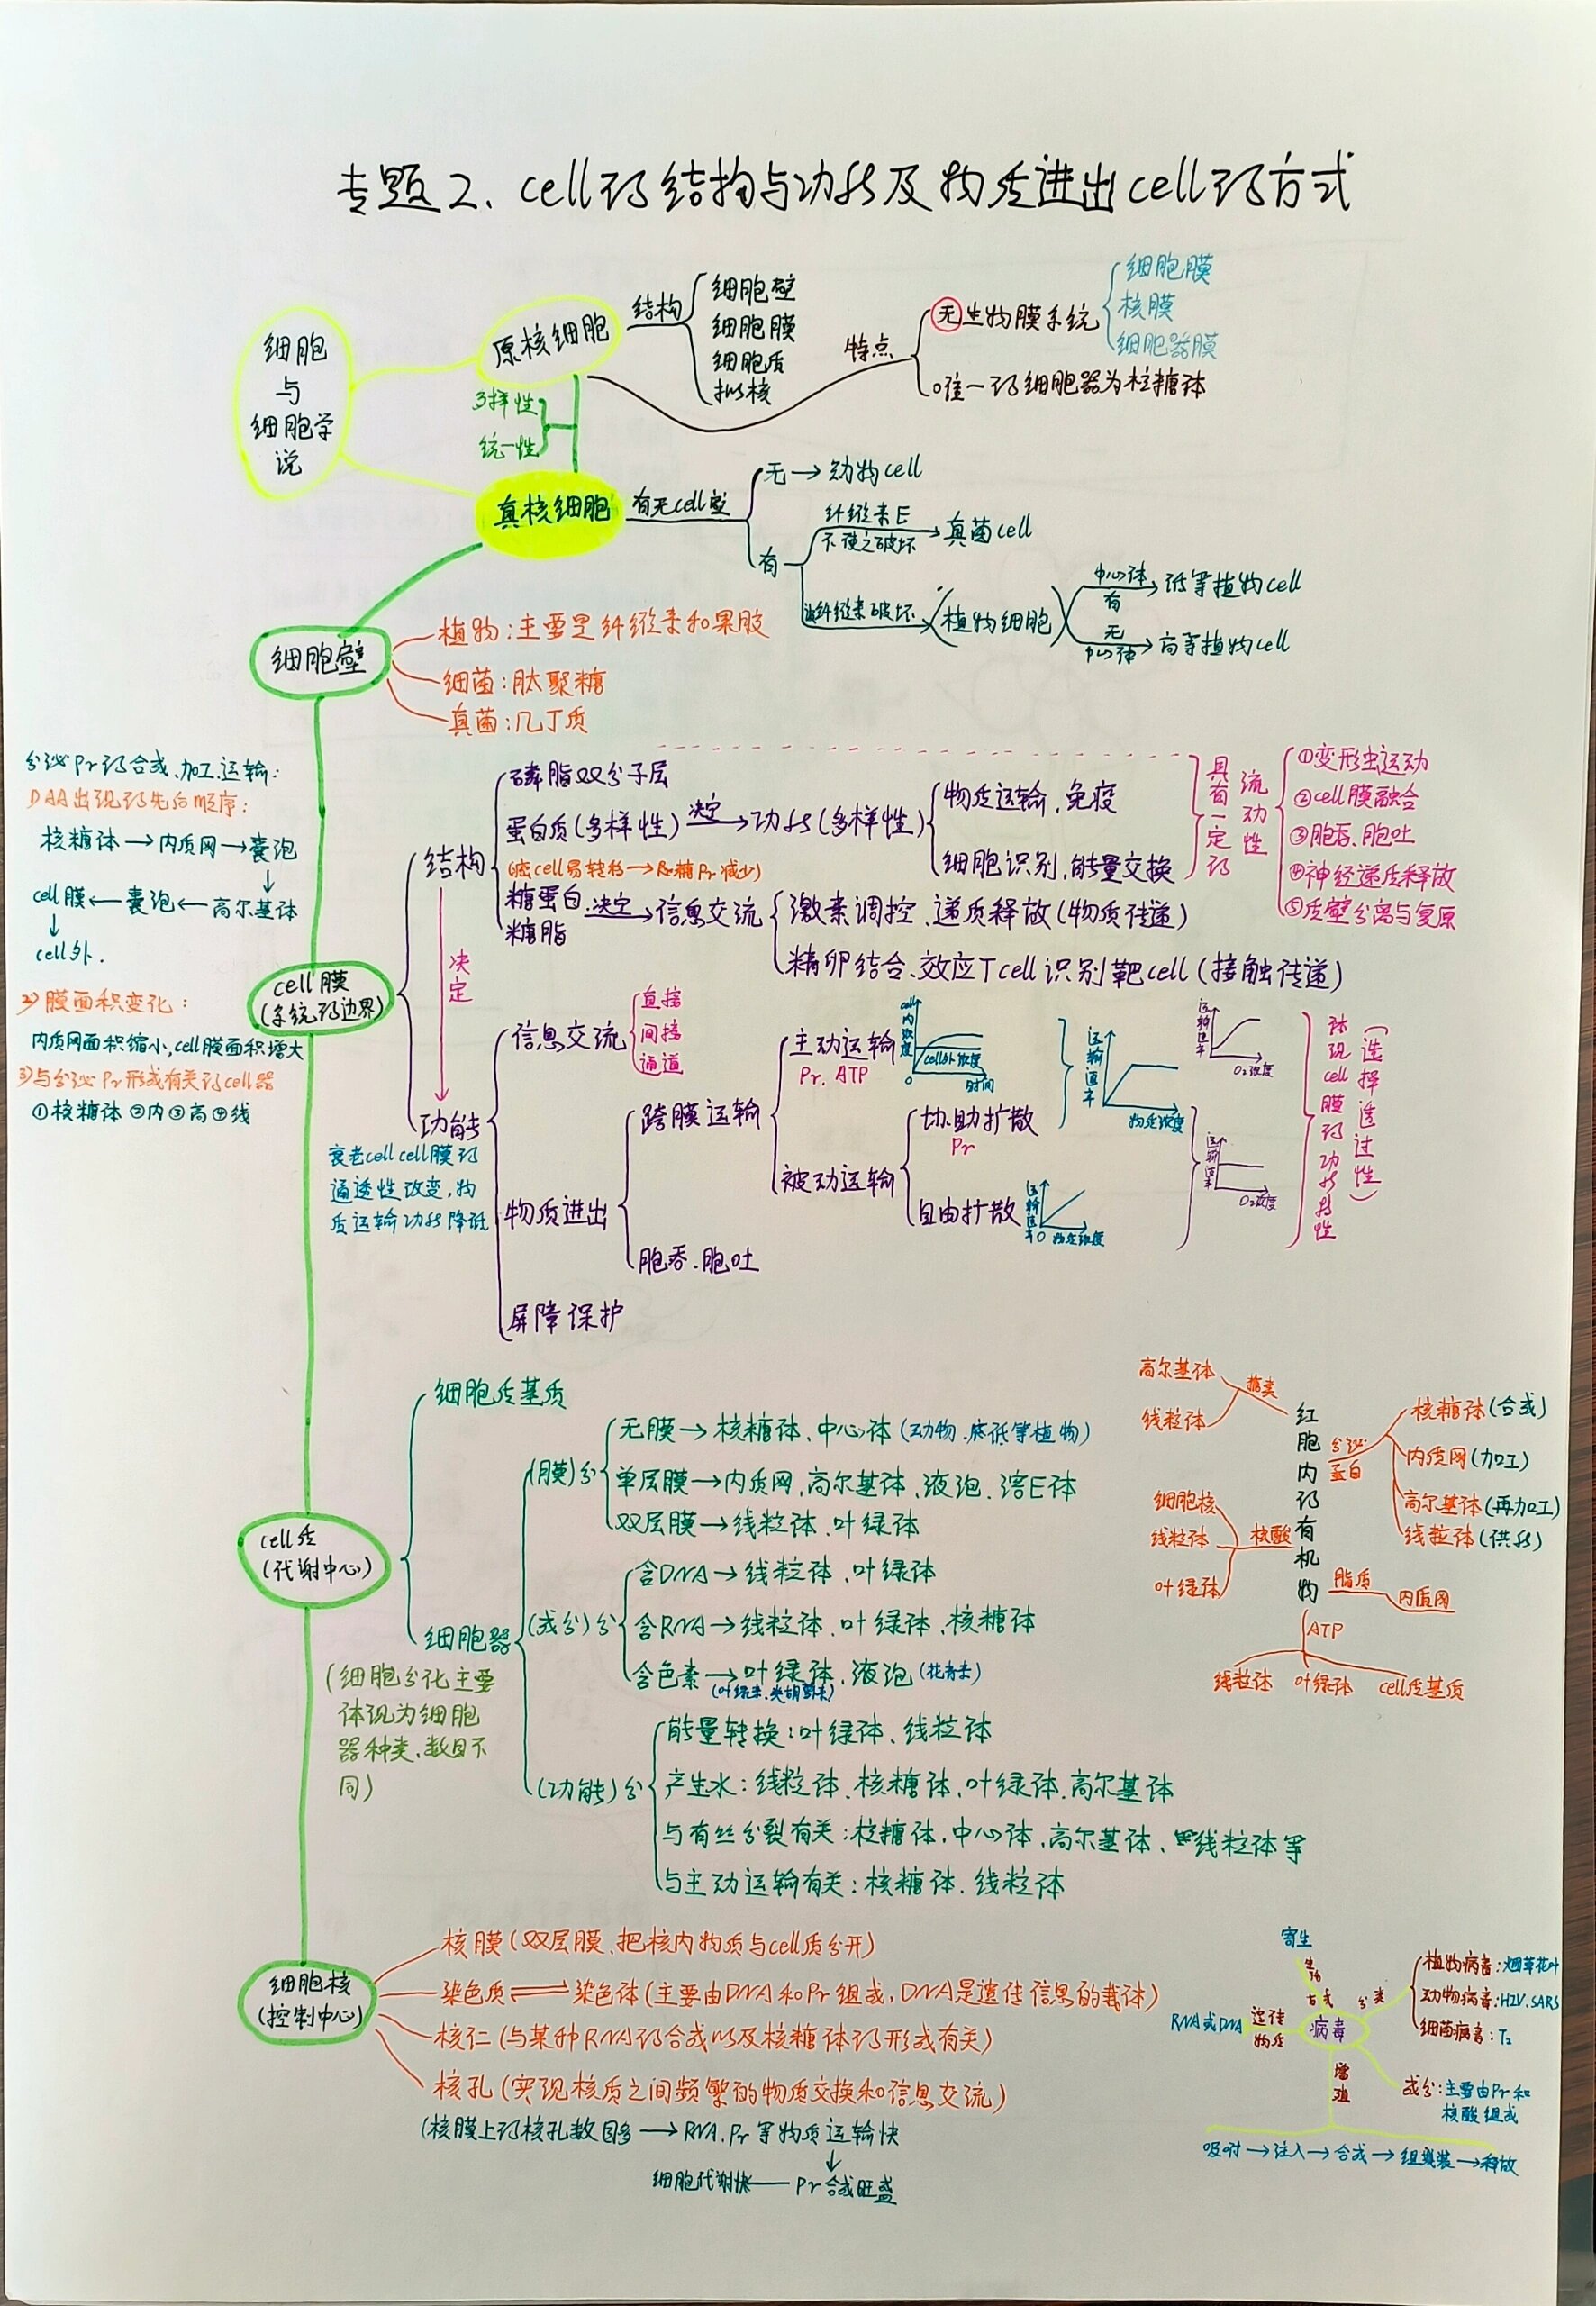 专题2、cell的结构与功能及物质进出cell的方式
细胞
与
细胞学
说
原核细胞
结构
细胞壁
细胞膜
细胞质
拟核
特点
无生物膜系统
细胞膜
核膜
细胞器膜
唯一的细胞器为核糖体
多样性
统一性
真核细胞
有无cell壁
无→动物cell
有
纤维素E
不使之破坏
真菌cell
被纤维素破坏
植物细胞
中心体
有
低等植物cell
无
中心体
高等植物cell
细胞壁
植物:主要是纤维素和果胶
细菌:肽聚糖
真菌:几丁质
分泌Pr的合成、加工、运输:
DAA出现的先后顺序:
核糖体→内质网→囊泡
cell膜←囊泡←高尔基体
cell外.
2)膜面积变化:
内质网面积缩小,cell膜面积增大
3)与分泌Pr形成有关的cell器
①核糖体②内③高④线
cell膜
(系统的边界)
结构
决定
功能
磷脂双分子层
蛋白质(多样性)决定→功能(多样性)
物质运输,免疫
细胞识别,能量交换
(癌cell易转移→糖Pr减少)
糖蛋白
糖脂
决定→信息交流
激素调控、递质释放(物质传递)
精卵结合、效应Tcell识别靶cell(接触传递)
具有一定的
流动性
①变形虫运动
②cell膜融合
③胞吞、胞吐
④神经递质释放
⑤质壁分离与复原
信息交流
直接
间接
通道
衰老cell cell膜的
通透性改变,物
质运输功能降低
物质进出
跨膜运输
主动运输
Pr、ATP
cell内浓度
cell外浓度
0
时间
被动运输
协助扩散
Pr
自由扩散
运输速率
0
物质浓度
运输速率
物质浓度
运输速率
O₂浓度
运输速率
O₂浓度
体现cell膜的功能特性
(选择透过性)
胞吞、胞吐
屏障保护
cell质
(代谢中心)
细胞质基质
细胞器
(细胞分化主要
体现为细胞
器种类、数目不
同)
(膜)分
无膜→核糖体、中心体(动物、低等植物)
单层膜→内质网,高尔基体、液泡、溶E体
双层膜→线粒体、叶绿体
(成分)分
含DNA→线粒体、叶绿体
含RNA→线粒体、叶绿体、核糖体
含色素→叶绿体、液泡(花青素)
(叶绿素、类胡萝卜素)
(功能)分
能量转换:叶绿体、线粒体
产生水:线粒体、核糖体、叶绿体、高尔基体
与有丝分裂有关:核糖体、中心体、高尔基体、线粒体等
与主动运输有关:核糖体、线粒体
胞内的有机物
糖类
高尔基体
线粒体
分泌
蛋白
核糖体(合成)
内质网(加工)
高尔基体(再加工)
线粒体(供能)
核酸
细胞核
线粒体
叶绿体
脂质
内质网
ATP
线粒体
叶绿体
cell质基质
细胞核
(控制中心)
核膜(双层膜、把核内物质与cell质分开)
染色质⇌染色体(主要由DNA和Pr组成,DNA是遗传信息的载体)
核仁(与某种RNA的合成以及核糖体的形成有关)
核孔(实现核质之间频繁的物质交换和信息交流)
(核膜上的核孔数目多→RNA、Pr等物质运输快
细胞代谢快←Pr合成旺盛
病毒
寄生
生活
方式
分类
植物病毒:烟草花叶
动物病毒:HIV、SARS
细菌病毒:T₂
RNA或DNA
遗传
物质
成分:主要由Pr和
核酸组成
增殖
吸附→注入→合成→组装→释放